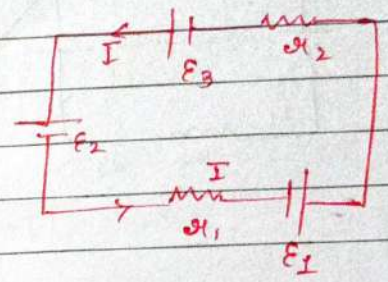 I
ε3
r2
ε2
I
r1
ε1